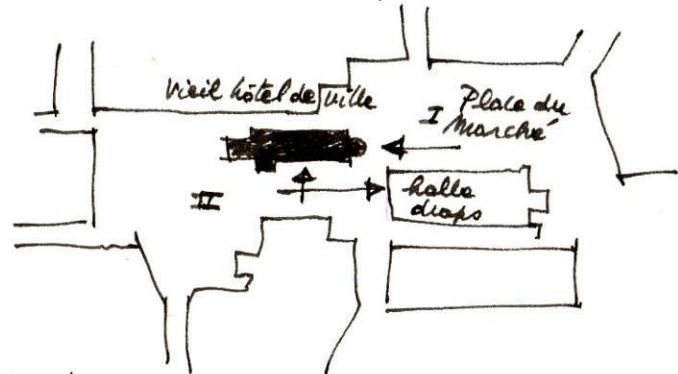 Vieil hôtel de ville
I
Place du
Marché
II
halle
draps